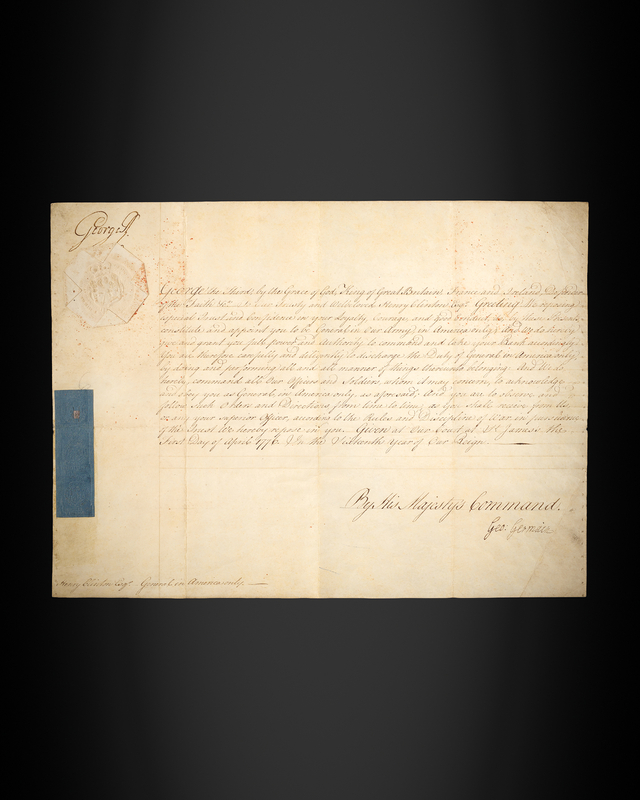 George R
George the Third by the Grace of God King of Great Britain, France and Ireland, Defender
of the Faith &c. to our Trusty and Welbeloved Henry Clinton Esqr. Greeting, We reposing
especial Trust and Confidence in your Loyalty, Courage, and good Conduct, do by these Presents
constitute and appoint you to be General in Our Army, in America only; And We do hereby
give and grant you full power and Authority to command and take your Rank accordingly.
You are therefore carefully and diligently to discharge the Duty of General in America only,
by doing and performing all and all manner of things thereunto belonging. And We do
hereby command all Our Officers and Soldiers whom it may concern, to acknowledge
and obey you as General, in America only, as aforesaid; And you are to observe and
follow such Orders and Directions from time to time, as You shall receive from Us
or any your superior Officer, according to the Rules and Discipline of War, in pursuance
of the Trust We hereby repose in you. Given at Our Court at St. James's the
First Day of April 1776. In the Sixteenth Year of Our Reign.
By His Majesty's Command.
Geo: Germain
Henry Clinton Esqr. General in America only.